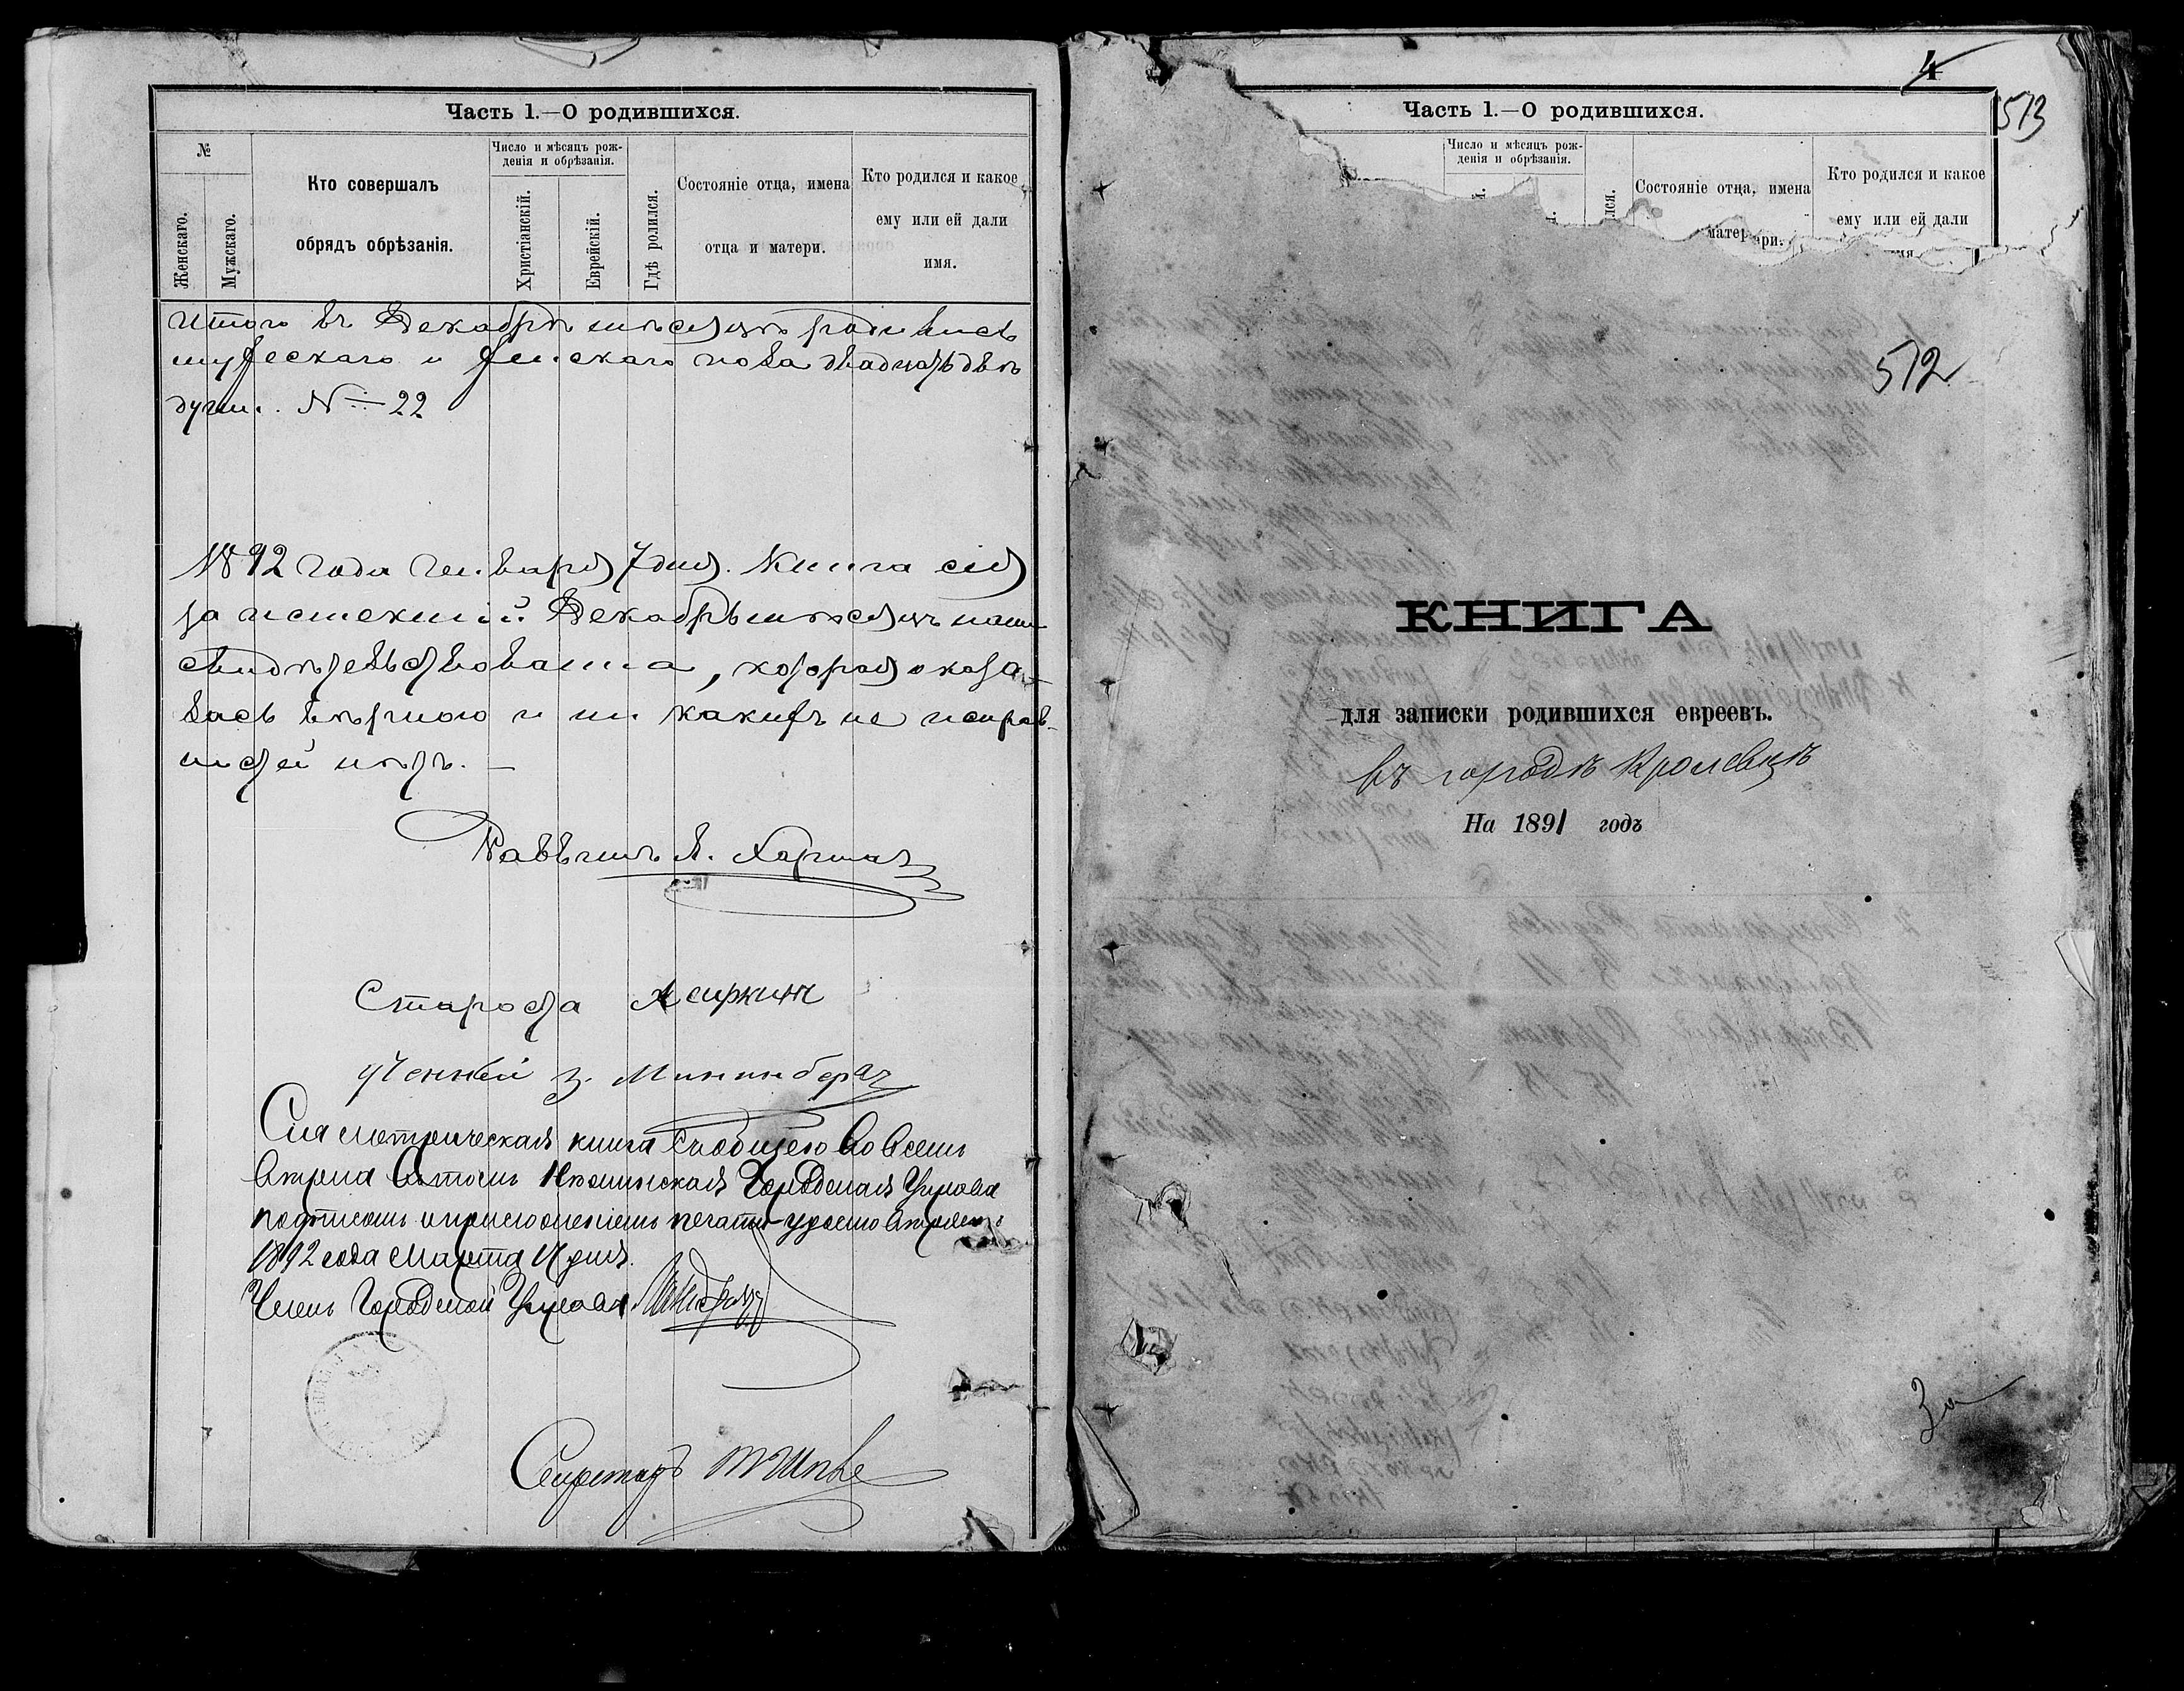 Часть 1.—О родившихся.
№
Женскаго.
Мужскаго.
Кто совершалъ
обрядъ обрѣзанія.
Число и мѣсяцъ рож-
денія и обрѣзанія.
Христіанскій.
Еврейскій.
Гдѣ родился.
Состояніе отца, имена
отца и матери.
Кто родился и какое
ему или ей дали
имя.
Итого въ Декабрѣ мѣсяцѣ родилось
мужескаго и женскаго пола двадцать двѣ
души. № 22
1892 года Генваря 7 дня. Книга сія
за истекшій Декабрь мѣсяцъ нами
свидѣтельствована, которая оказа-
лась вѣрною и ни какихъ не исправ-
ностей нѣтъ. —
Раввинъ
Староста
ученый З.
Сія метрическая книга съ общею во всемъ
Городская Управа
подписомъ и приложеніемъ печати
1892 года Марта дня.
Членъ Городской Управы
Секретарь
4
513
Часть 1.—О родившихся.
Число и мѣсяцъ рож-
денія и обрѣзанія.
Состояніе отца, имена
матери.
Кто родился и какое
ему или ей дали
512
КНИГА
для записки родившихся евреевъ.
въ городѣ Кролевцѣ
На 1891 годъ